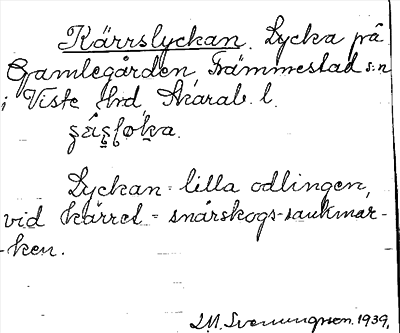 Kärrslyckan. Lycka på
Gamlegården, Främmestad s:n
i Viste hrd, Skarab. l.
Lyckan = lilla odlingen,
vid kärret = snårskogs-sankmar-
-ken.
1939.